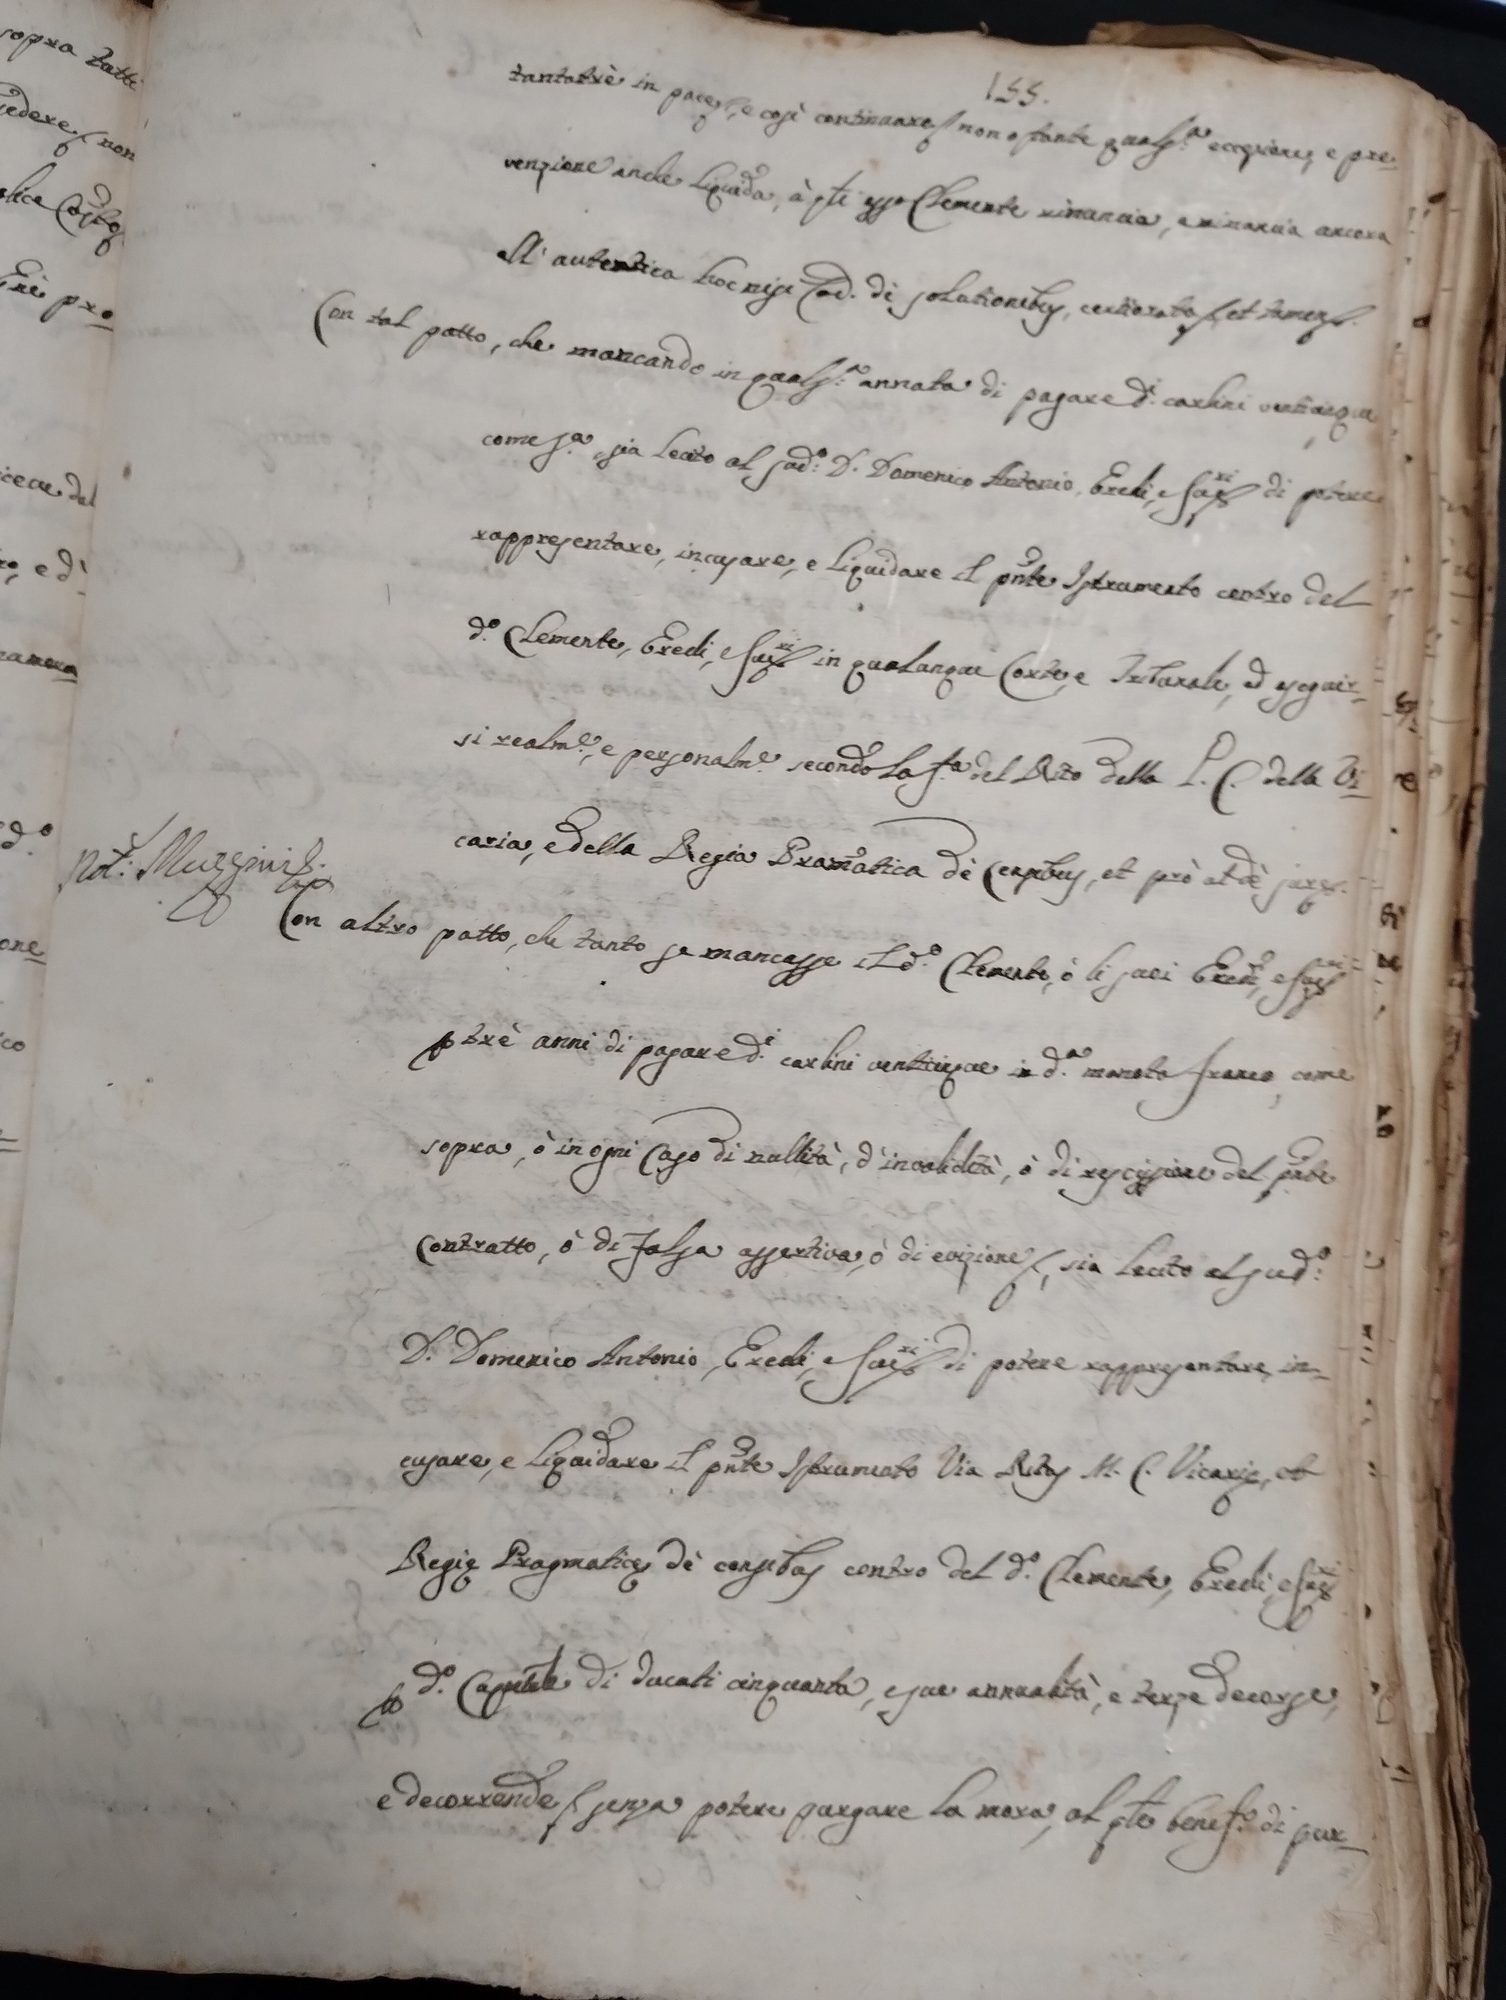 sopra tutti
cedere, non
plice
pro
del
e d'
d.º
one
ico
155.
tantatrè in pace, e così continuare, non ostante quals.ª eccezione, e pre-
venzione anche liquida, à q̃le esso Clemente rinuncia, e rinuncia ancora
all' autentica hoc nisi Cod. di solutionibus, certiorato, et tamen.
Con tal patto, che mancando in quals.ª annata di pagare d.i carlini venticinque
come s.ª, sia lecito al sud.º D. Domenico Antonio, Eredi, e suc.ri di potere
rappresentare, incusare, e liquidare il pñte Istrumento contro del
d.º Clemente, Eredi, e suc.ri in qualunque Corte, e Tribunale, ed eseguir-
si realm.e, e personalm.e secondo la f.ª del Rito della G. C. della Vi-
caria, e della Regia Prammatica de Censibus, et prò ut dè jure.
Not.r Muzzini
Con altro patto, che tanto se mancasse il d.º Clemente, ò li suoi Eredi, e suc.ri
p trè anni di pagare d.i carlini venticinque in d.ª moneta franco, come
sopra, ò in ogni Caso di nullità, d' invalidità, ò di rescissione del pñte
Contratto, ò di falsa assertiva, ò di evizione, sia lecito al sud.º
D. Domenico Antonio, Eredi, e suc.ri di potere rappresentare, in-
cusare, e liquidare il pñte Istrumento Via Ritus M. C. Vicarię, et
Regię Pragmaticę dè censibus contro del d.º Clemente, Eredi, e suc.ri
p d.º Capitale di ducati cinquanta, e sue annualità, e terze decorse,
e decorrende, senza potere purgare la mora, al q̃le benef.º di pur-